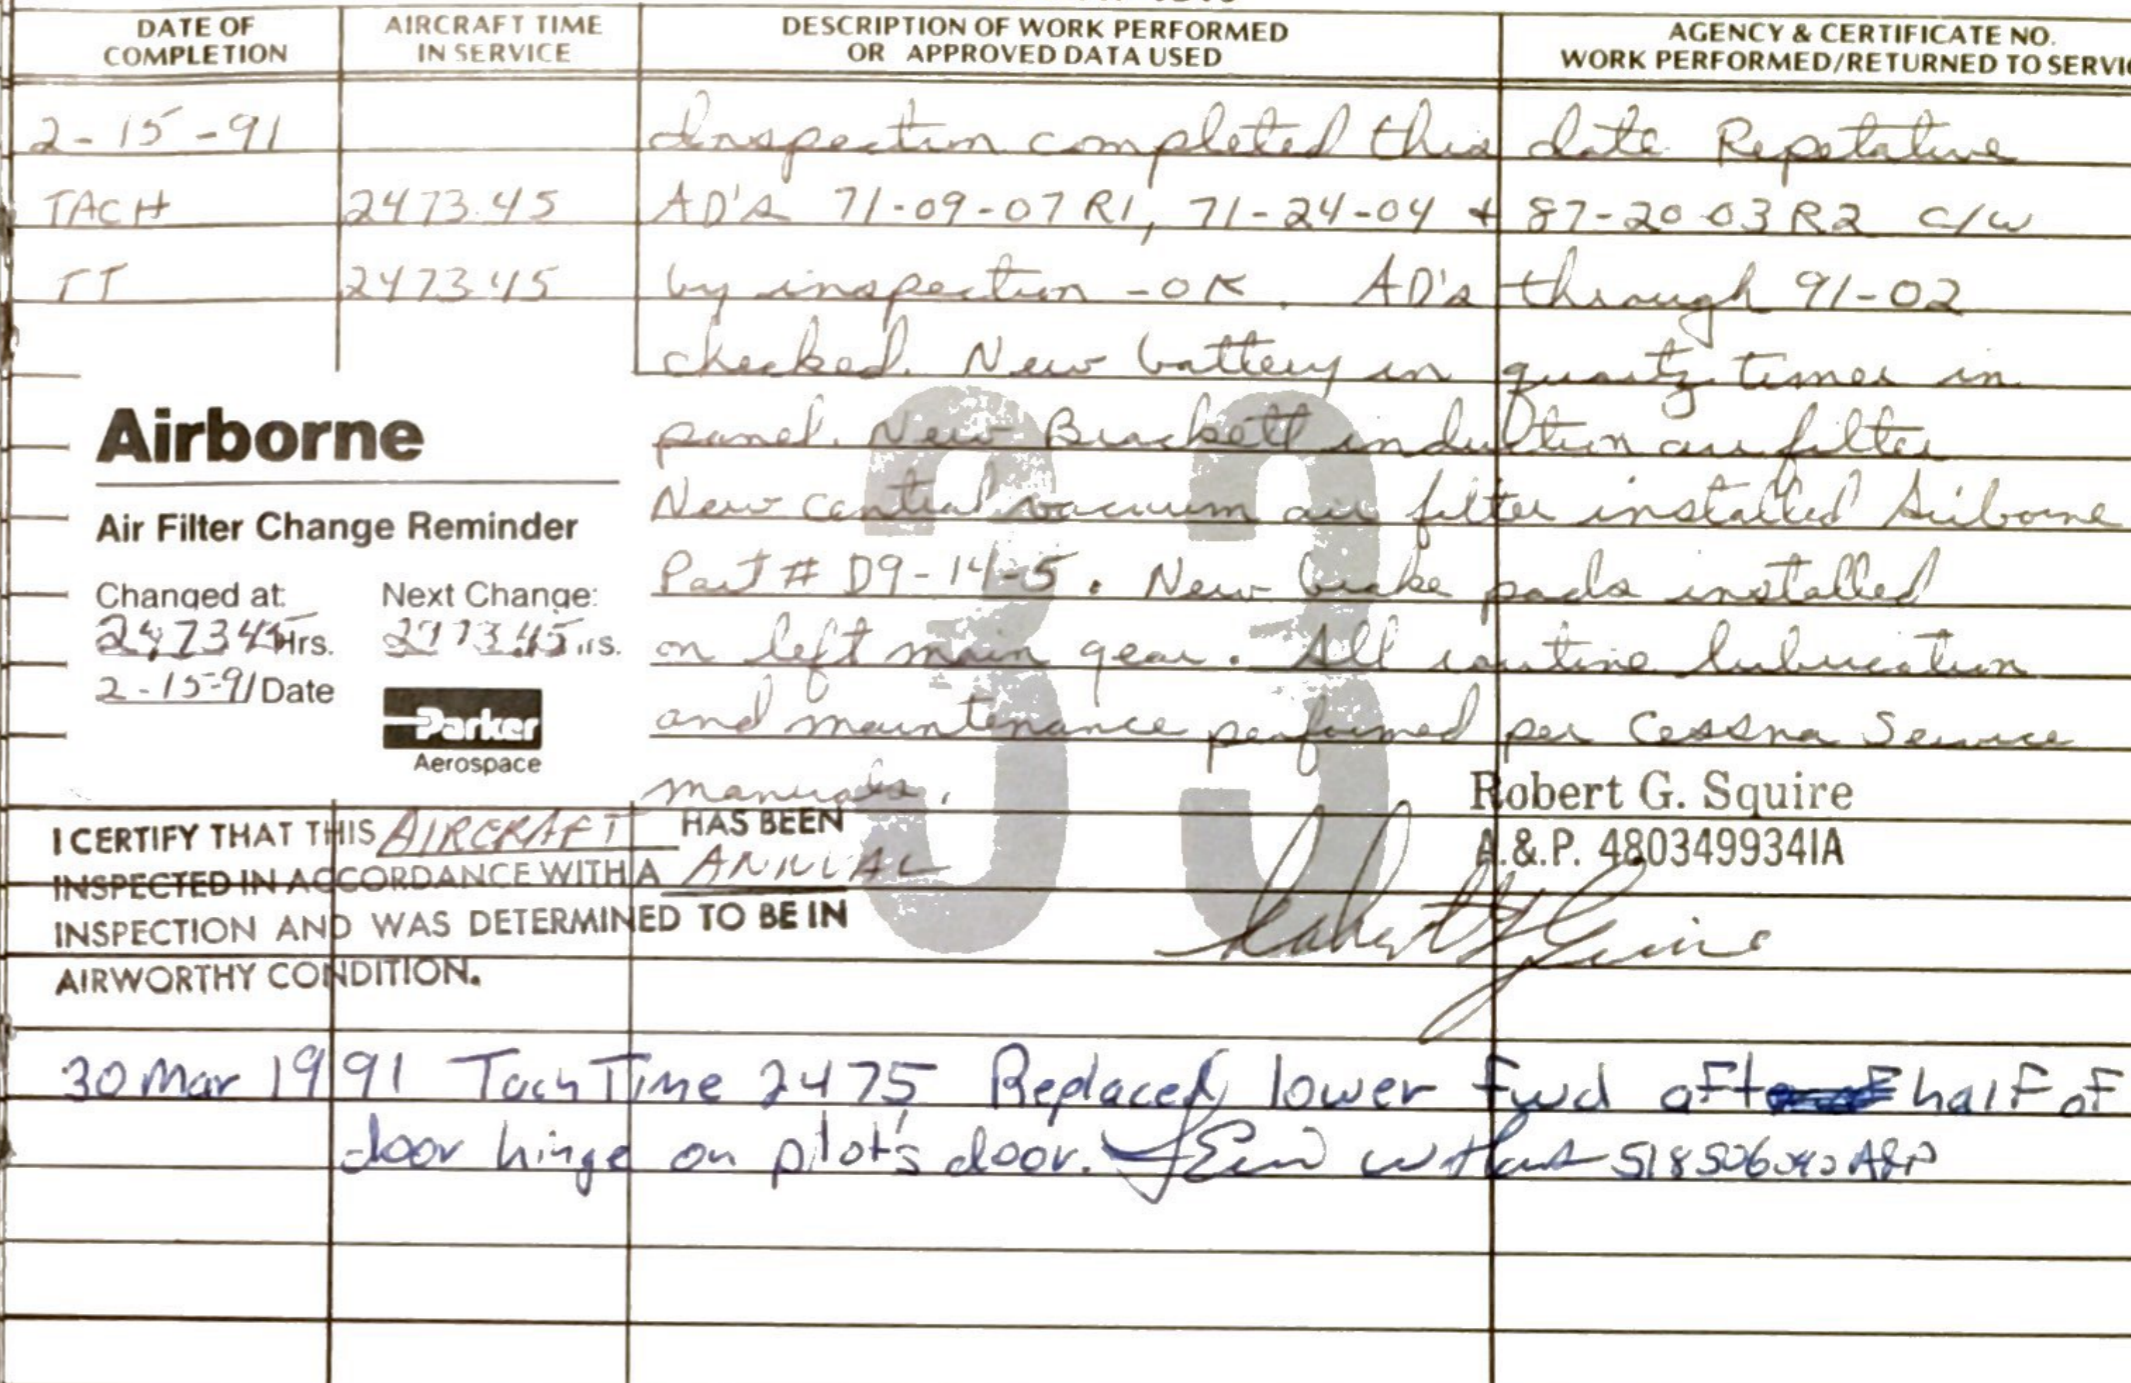 DATE OF COMPLETION
AIRCRAFT TIME IN SERVICE
DESCRIPTION OF WORK PERFORMED OR APPROVED DATA USED
AGENCY & CERTIFICATE NO. WORK PERFORMED/RETURNED TO SERVIC
2-15-91 Inspection completed this date Repetative
TACH 2473.45 AD's 71-09-07 R1, 71-24-04 + 87-20-03 R2 c/w
TT 2473.45 by inspection -OK. AD's through 91-02
checked. New battery in quartz timer in
panel. New Brackett induction air filter
New central vacuum air filter installed Airborne
Part # D9-14-5. New brake pads installed
on left main gear. All routine lubrication
and maintenance performed per Cessna Service
manuals.
Airborne
Air Filter Change Reminder
Changed at: Next Change:
2473.45 Hrs. Hrs.
2-15-91 Date
Parker
Aerospace
33
Robert G. Squire
A.&P. 480349934IA
I CERTIFY THAT THIS AIRCRAFT HAS BEEN
INSPECTED IN ACCORDANCE WITH A ANNUAL
INSPECTION AND WAS DETERMINED TO BE IN
AIRWORTHY CONDITION.
Robert G Squire
30 Mar 1991 Tach Time 2475 Replaced lower fwd aft half of
door hinge on pilot's door. A&P